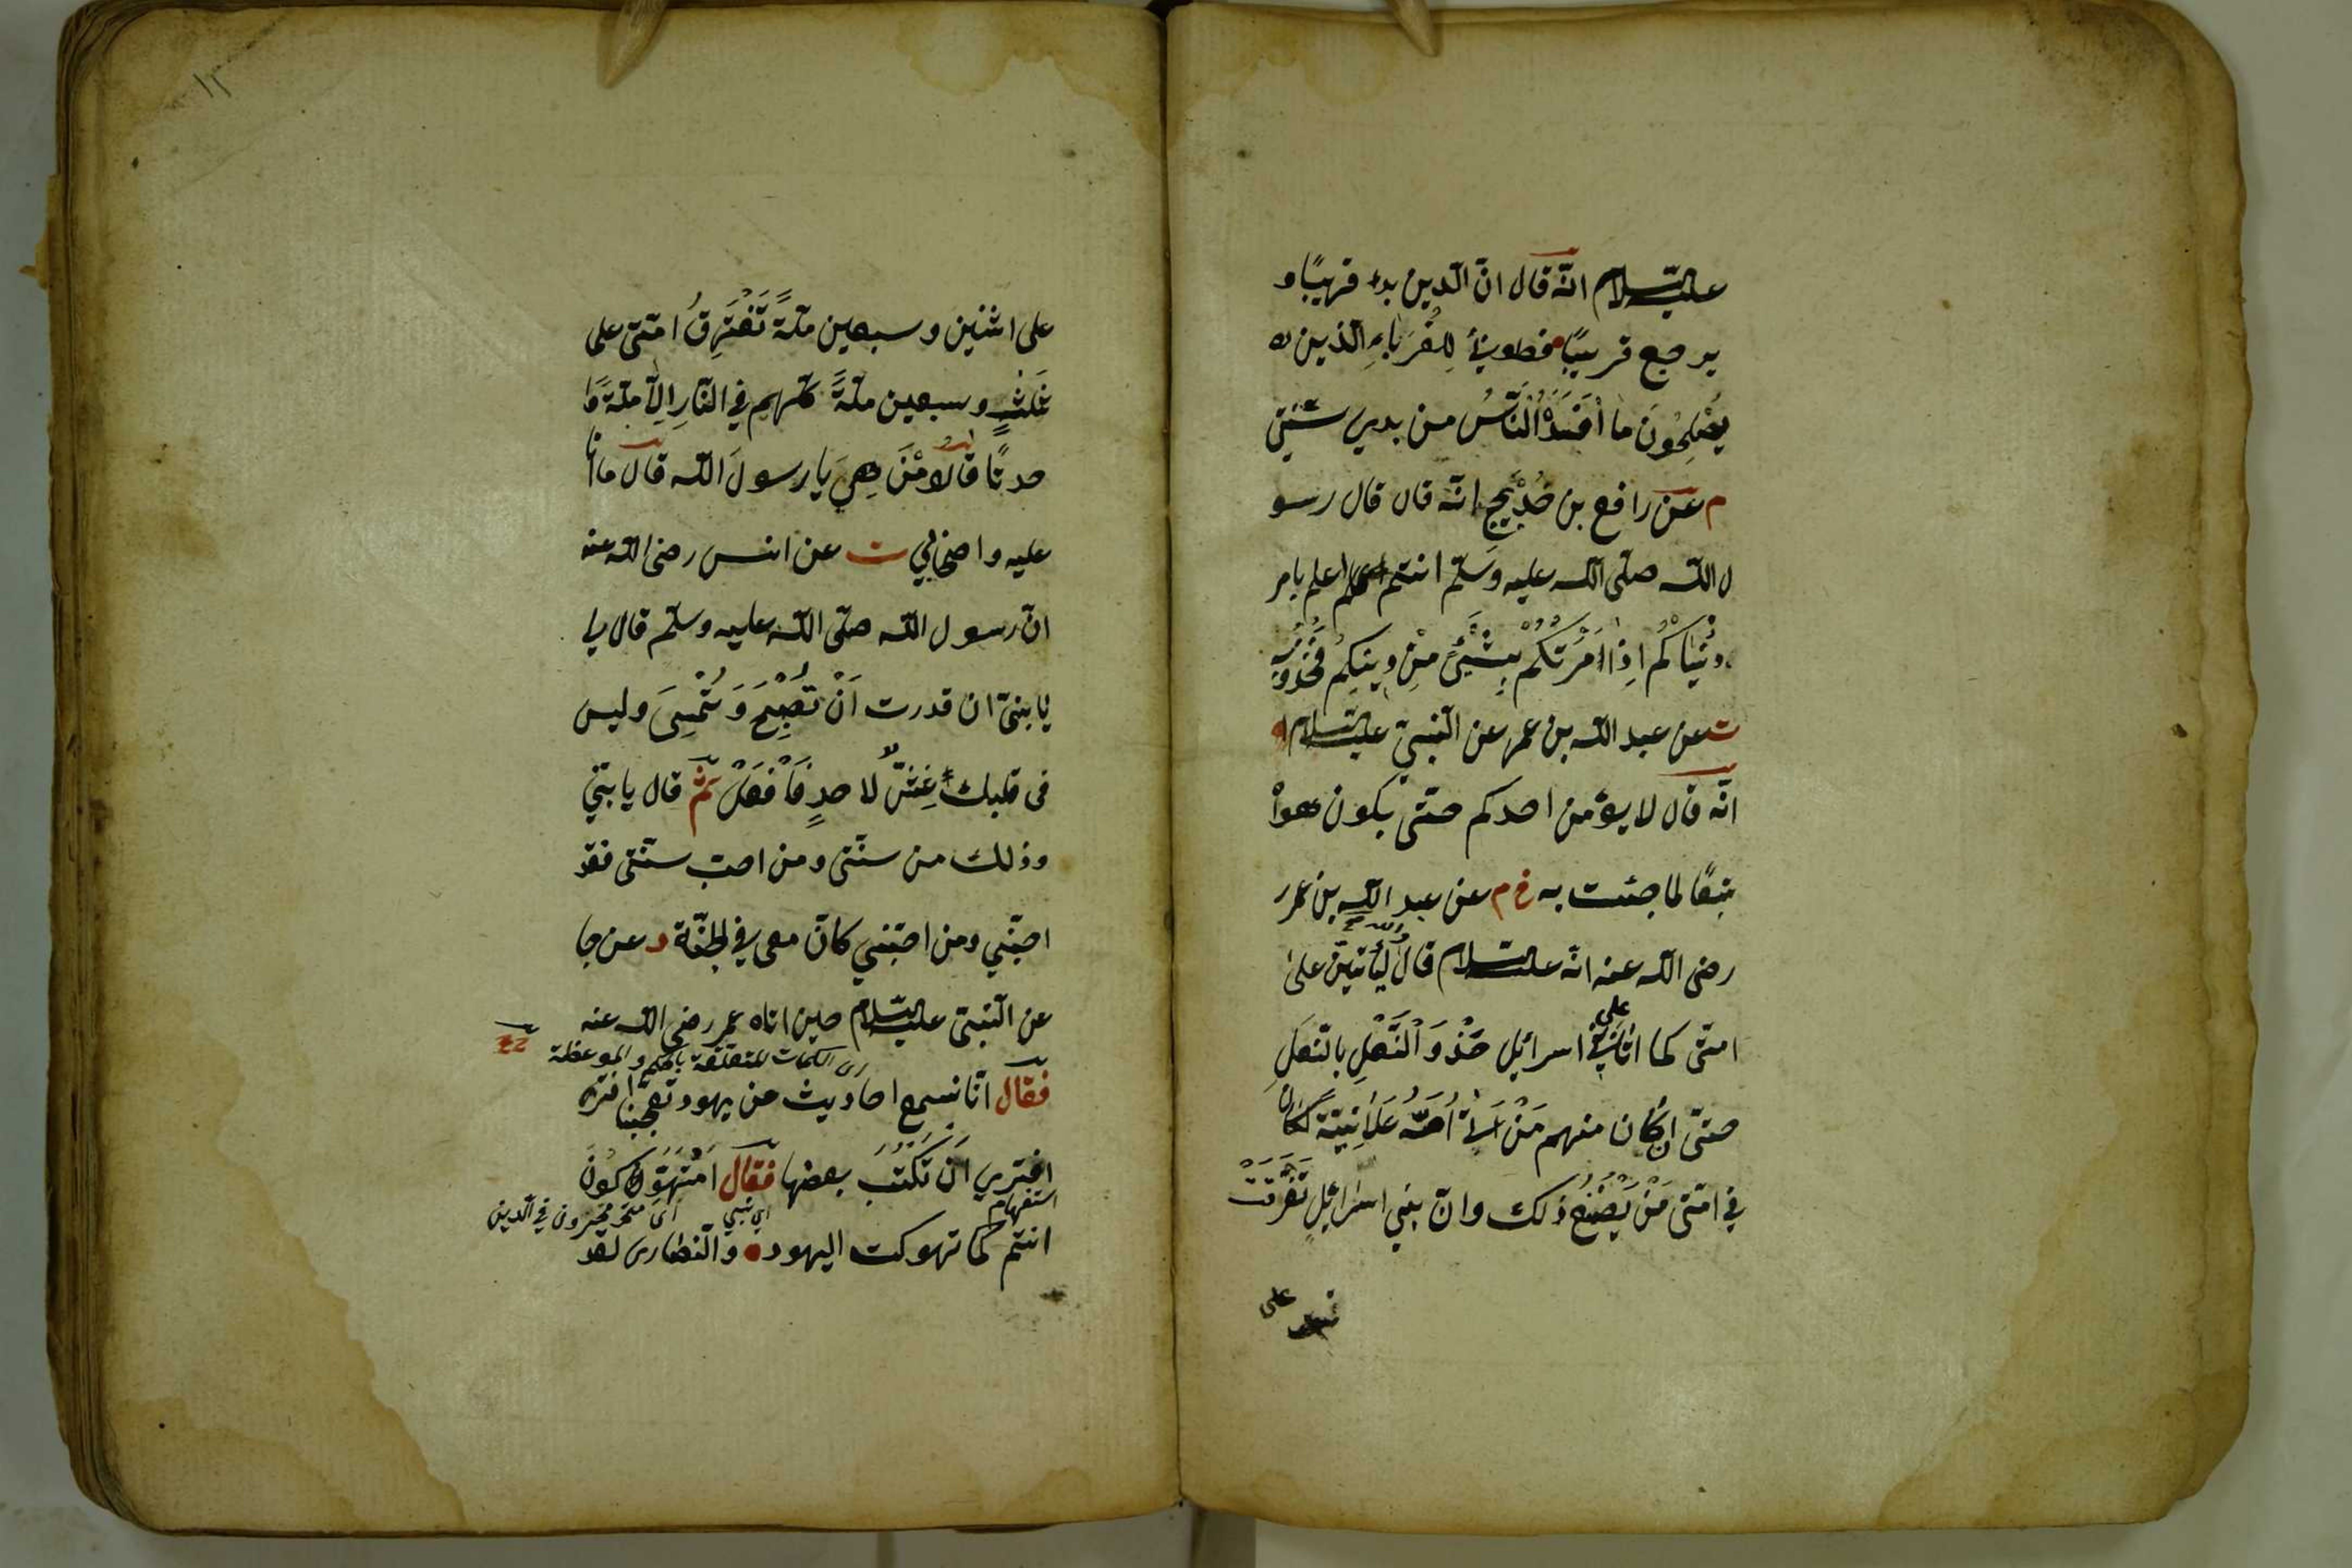 عليه السلام انّه قال انّ الدين بدء قريبًا و
يرجع قريبًا فطوبى لِلغُرَباءِ الذين
يُصْلِحُونَ ما أفْسَدَ النّاسُ من بعدي سنّتي
م عن رافع بن خديج انّه قال قال رسو
ل اللّه صلّى اللّه عليه وسلّم انتم اعلم بامر
دُنْيَاكُم اِذا اَمَرْتُكُم بِشَيْئٍ مِنْ دِينِكُم فَخُذُوهُ
ت عن عبد اللّه بن عمر عن النّبيّ عليه السلام
انّه قال لا يؤمن احدكم حتّى يكون هواه
تبعًا لما جئت به خ م عن عبد اللّه بن عمر
رضى اللّه عنه انّه عليه السلام قال لَيَأتِيَنّ على
امتى كما اتى على بنى اسرائيل حَذْوَ النَّعْلِ بالنّعلِ
حتّى ان كان منهم مَنْ اَتى اُمَّهُ عَلَانِيَةً لكان
في امّتى مَنْ يَصْنَعُ ذلك وانّ بني اسرائيل تَفَرَّقَتْ
على
١٢
على اثنين وسبعين ملّةً تَفْتَرِقُ امّتى على
ثَلٰثٍ وسبعين ملّةً كلّهم في النّارِ اِلّا ملّةً وا
حدةً قالوا مَنْ هِيَ يا رسولَ اللّه قال ما انا
عليه واصحابي ت عن انس رضى اللّه عنه
انّ رسول اللّه صلّى اللّه عليه وسلّم قال لي
يا بنىّ ان قدرت اَنْ تُصْبِحَ وَتُمْسِىَ وليس
فى قلبك غِشٌّ لاحدٍ فَافْعَلْ ثمّ قال يا بنيّ
وذلك من سنّتى ومن احبّ سنّتى فقد
احبّني ومن احبّني كان معى في الجنّة د عن جا
عن النّبيّ عليه السلام حين اتاه عمر رضى اللّه عنه
الكلمات المتعلقة بالحكم والموعظة
فقال انّا نسمع احاديث من يهود تعجبنا افترى
افترى اَنْ نَكْتُبَ بعضها فقال اَمُتَهَوِّكُونَ
استفهام
اى متحيرون في الدين
انتم كما تهوكت اليهود والنّصارى لقد